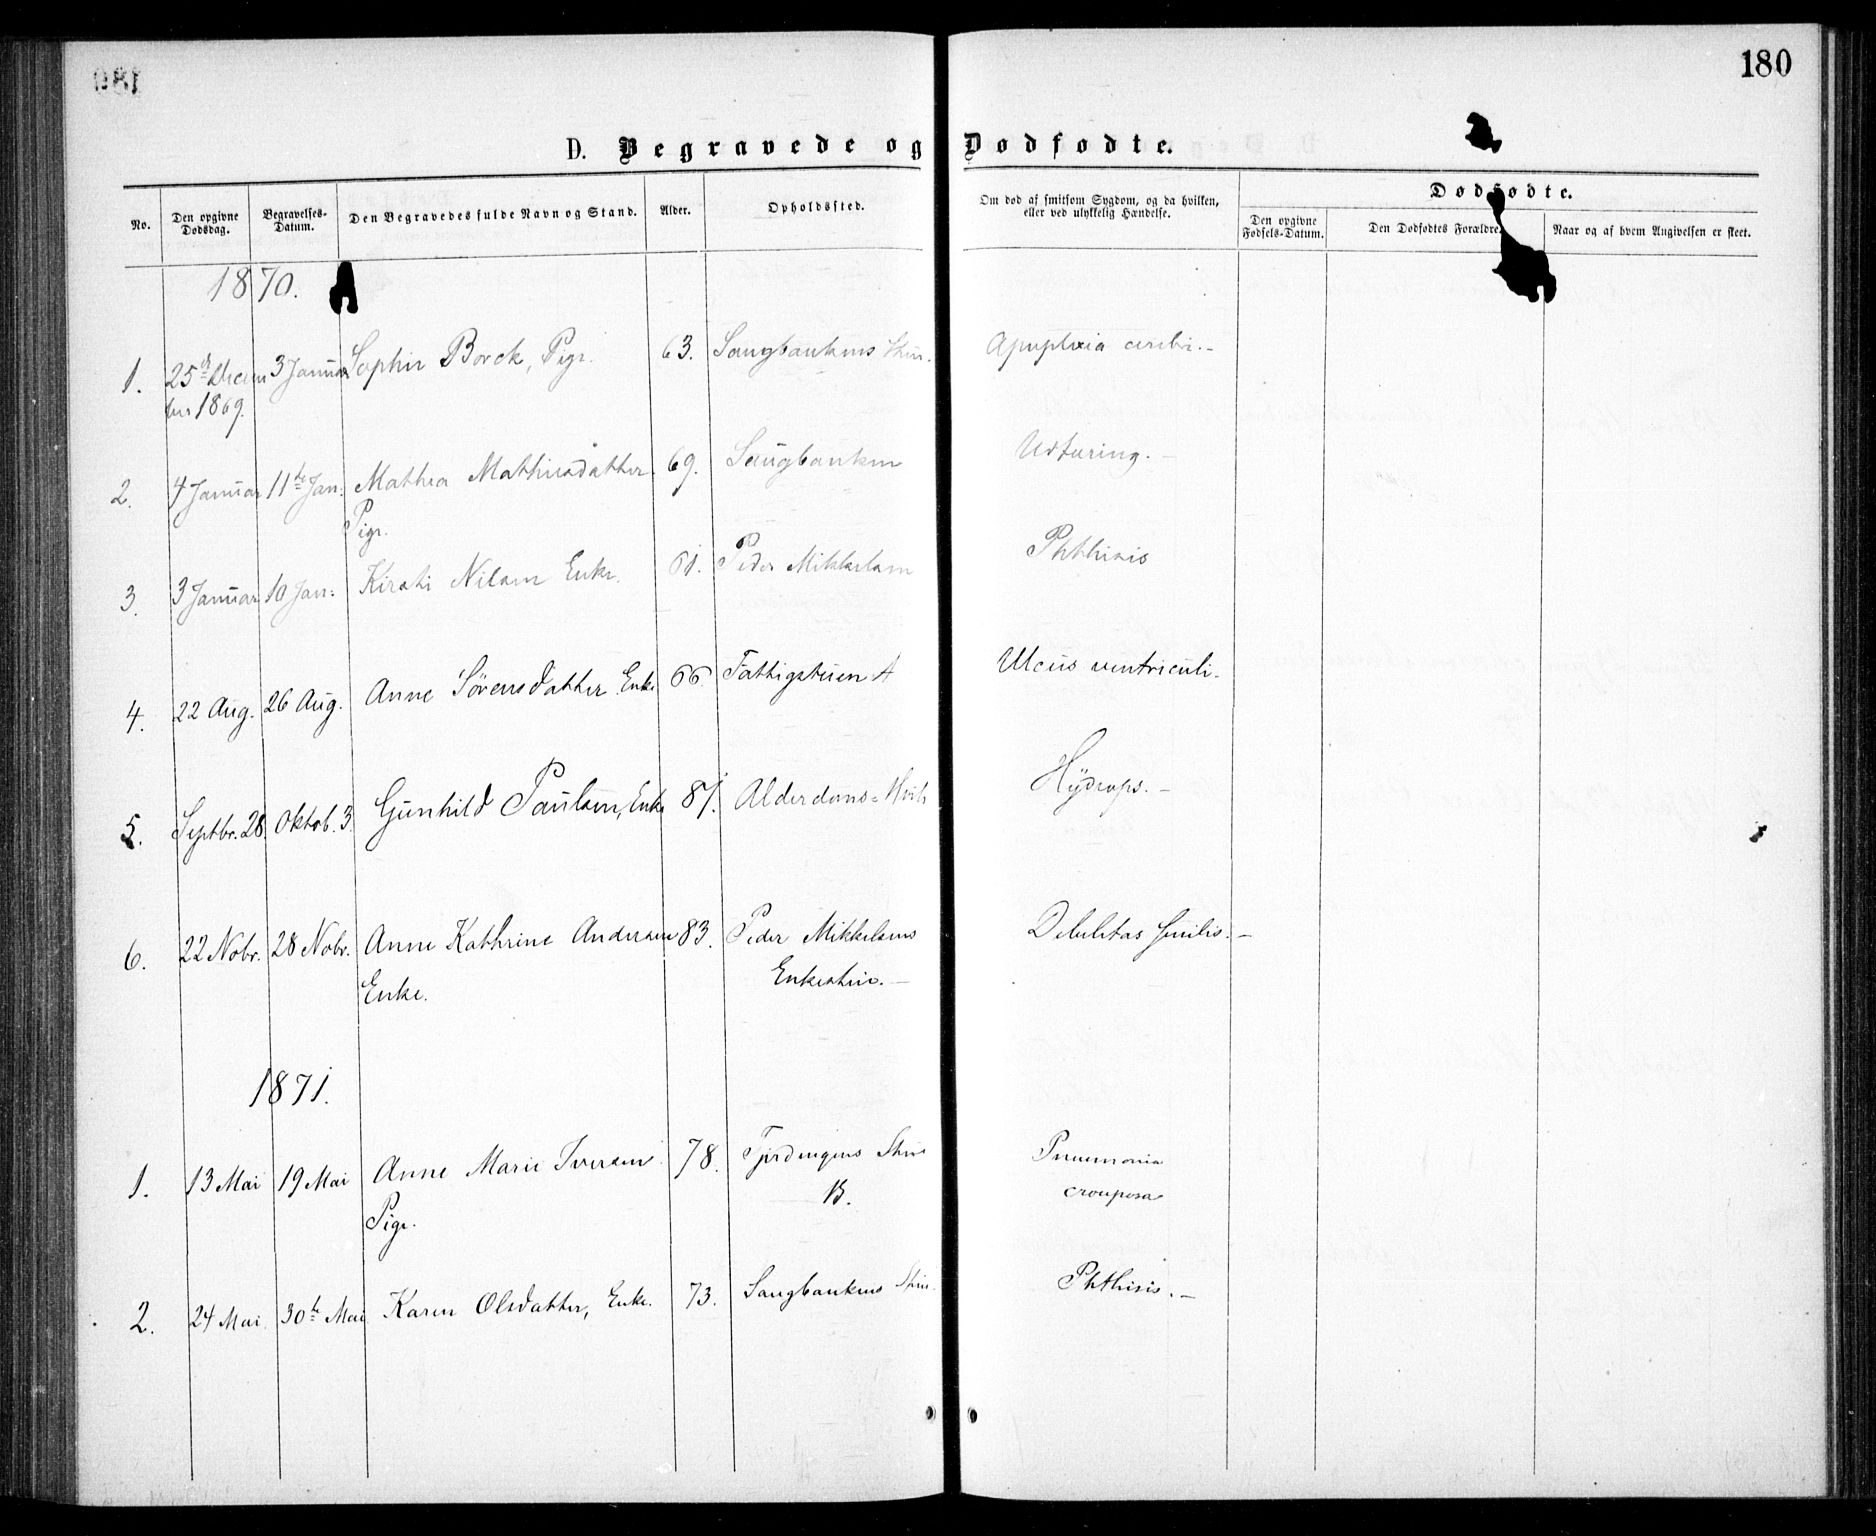 180
D. Begravede og Dødfødte.
No.
Den opgivne Dødsdag.
Begravelses-Datum.
Den Begravedes fulde Navn og Stand.
Alder.
Opholdssted.
Om død af smitsom Sygdom, og da hvilken, eller ved ulykkelig Hændelse.
Dødfødte.
Den opgivne Fødsels-Datum.
Den Dødfødtes Forældre.
Naar og af hvem Angivelsen er skeet.
1870.
1. 25de Decem 3 Januar Sophie Borck, Pige. 63. Saugbankens Stue. Apoplexia cerebri.-
ber 1869.
2. 4 Januar 11te Jan: Mathea Mathiesdatter 69. Saugbanken Udtæring.-
Pige.
3. 3 Januar 10 Jan: Kirsti Nilsen Enke. 61. Peder Mikkelsen Phthisis
4. 22 Aug. 26 Aug. Anne Sørensdatter Enke 66. Fattigstuen A Ulcus ventriculi.
5. Septbr. 28 Oktob. 3. Gunhild Paulsen, Enke 81. Alderdoms=Hvile Hydrops.-
6. 22 Nobr. 28 Nobr. Anne Kathrine Andersen 83. Peder Mikkelsens Debilitas senilis.-
Enke. Enkestue.-
1871.
1. 13 Mai 19 Mai Anne Marie Iversen 78. Fjerdingens Stue Pneumonia
Pige. B. crouposa
2. 24 Mai. 30te Mai Karen Olsdatter, Enke. 73. Saugbankens Stue. Phthisis.-